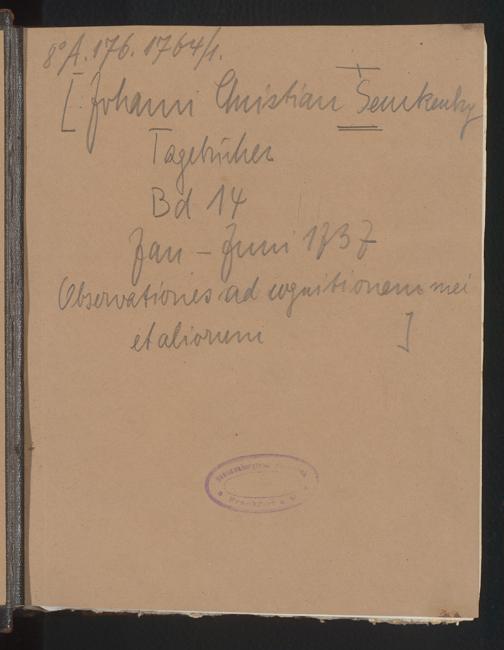 8° A. 176. 1764/1.
[Johann Christian Senckenberg
Tagebücher
Bd 14
Jan – Juni 1737
Observationes ad cognitionem mei
et aliorum ]
Frankfurt a. M.